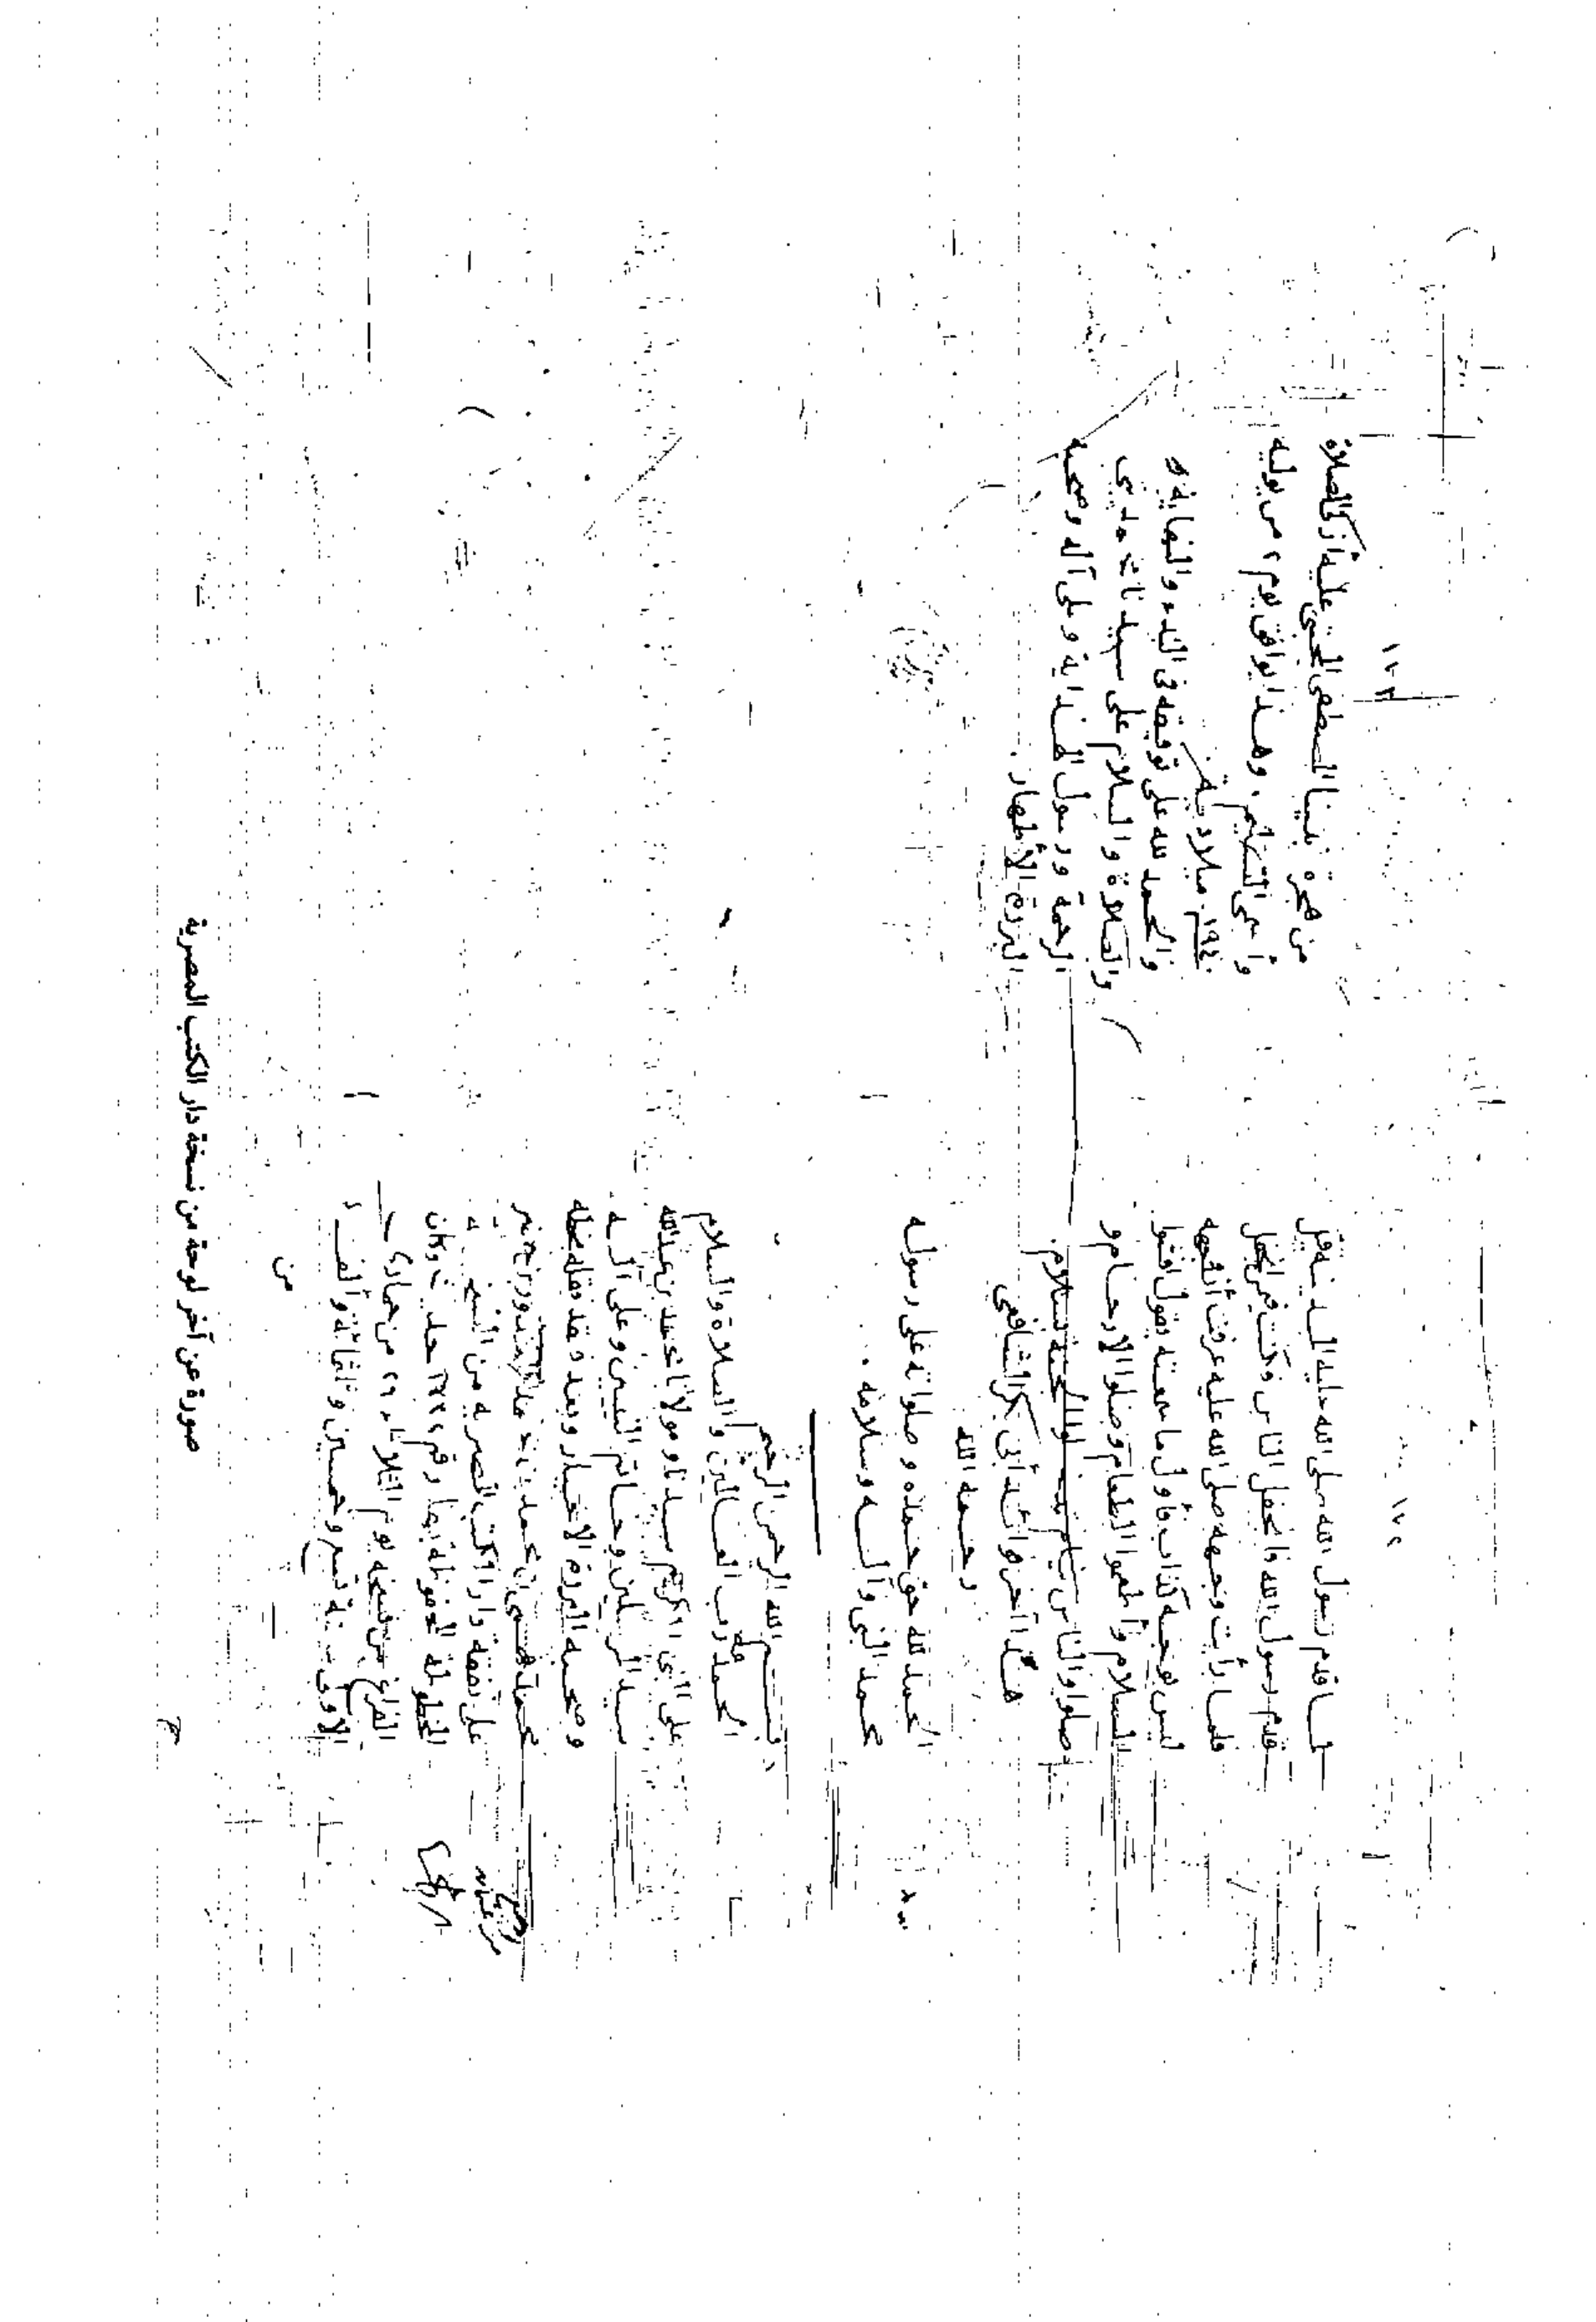 ١٧٢
لما قدم رسول الله صلى الله عليه المدينة قيل
قدم رسول الله فانجفل الناس وكنت فيمن انجفل
فلما رأيت وجهه صلى الله عليه عرفت أن وجهه
ليس بوجه كذاب فأول ما سمعته يقول افشوا
السلام وأطعموا الطعام وصلوا الأرحام و
صلوا والناس نيام تدخلوا الجنة بسلام.
هذا آخر فوائد أبى بكر الشافعى
رحمه الله
الحمد لله حق حمده وصلواته على رسوله
محمد النبى وآله وسلامه.
بسم الله الرحمن الرحيم
الحمد لله رب العالمين والصلاة والسلام
على النبى الكريم سيدنا ومولانا محمد بن عبد الله
سيد المرسلين وخاتم النبيين وعلى آله
وصحبه البررة الأخيار وبعد فقد نقله بخطه
على نفقة دار الكتب المصرية من النسخة
المخطوطة المحفوظة بها رقم حديث وكان
الفراغ من نسخه يوم الثلاثاء ٢٦ من جمادى
الأولى سنة تسع وخمسين وثلثمائة وألف
من
١٧٣
من هجرة نبينا المصطفى المجتبى عليه أزكى الصلاة
وأسمى التسليم. وهذا يوافق يوم ٢ من يوليه
١٩٤٠م ميلادية
والحمد لله على توفيقه فى البدء والنهاية و
والصلاة والسلام على سيدنا محمد نبى
الرحمة ورسول الهداية وعلى آله وصحبه
البررة الأطهار.
صورة عن آخر لوحة من نسخة دار الكتب المصرية